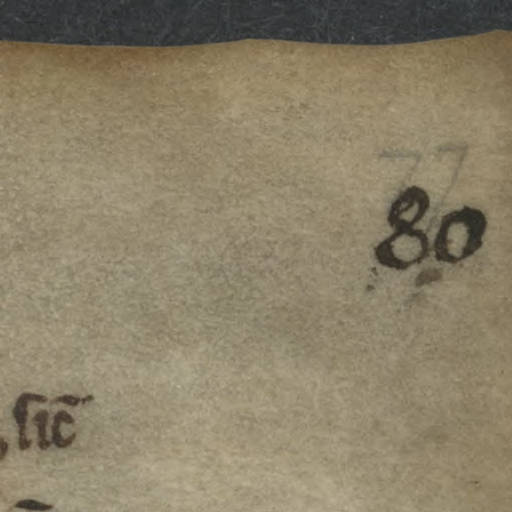 77
80
sic̄